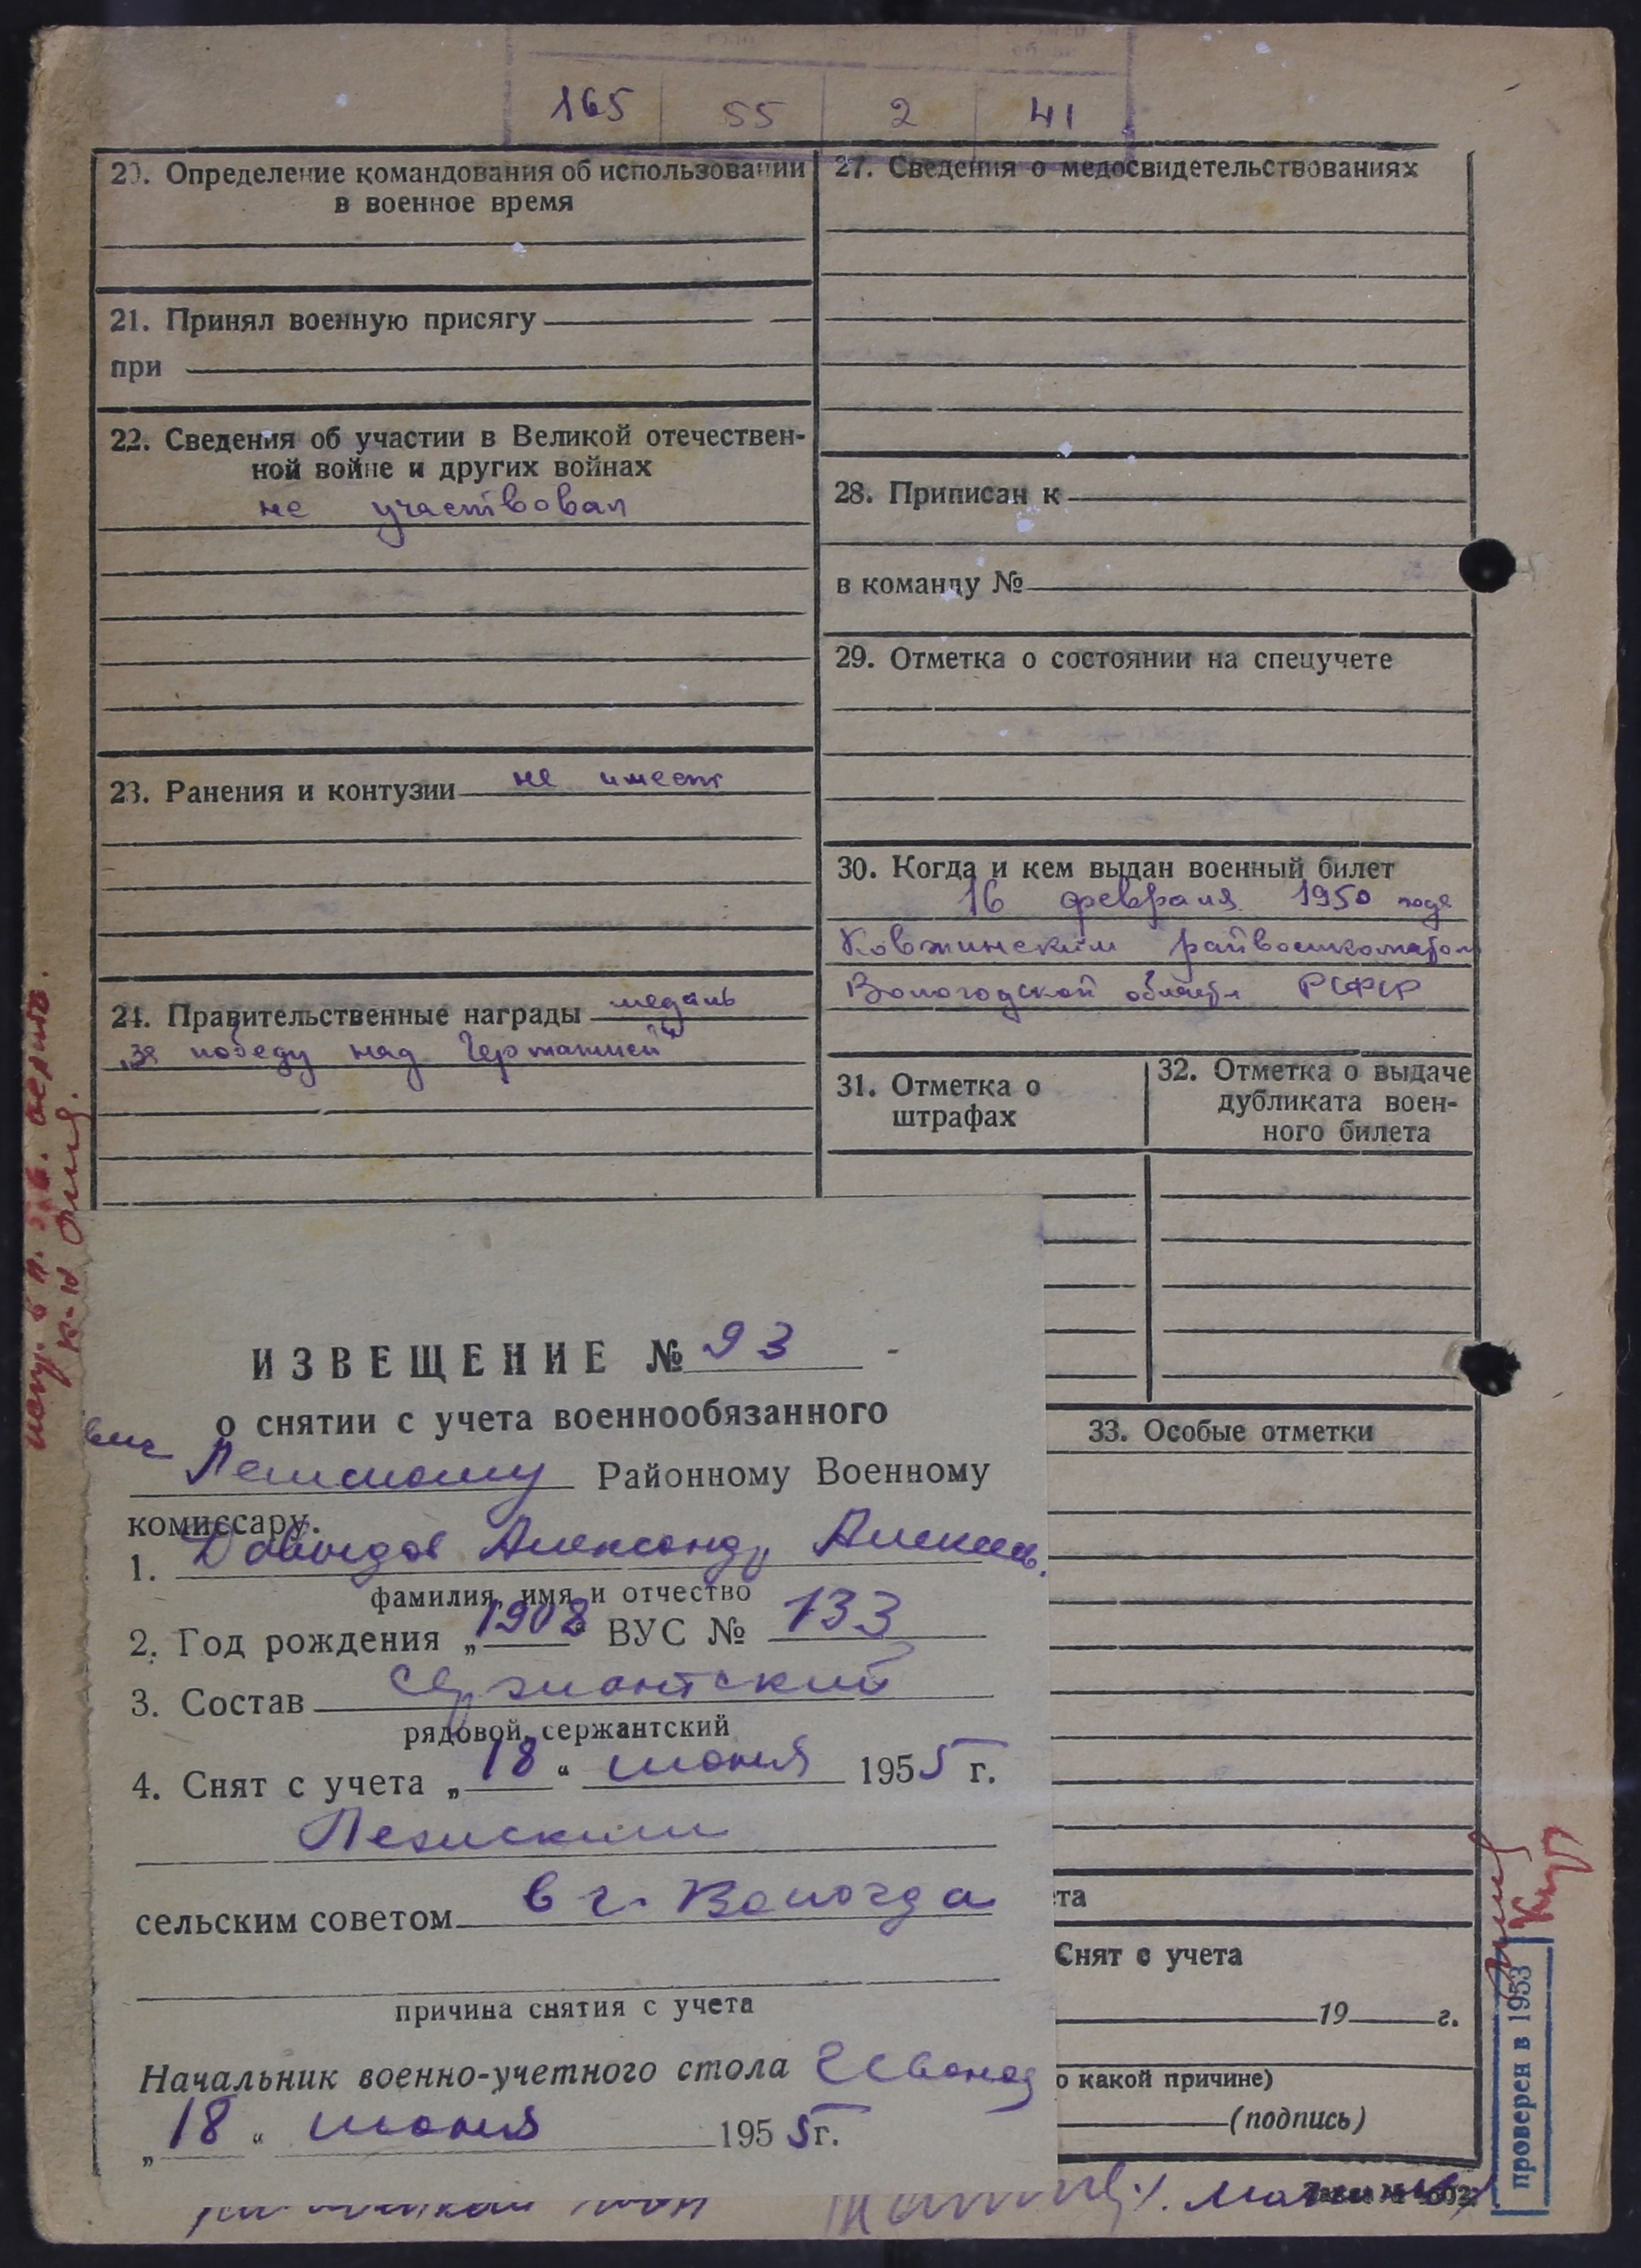 165 55 2 41
20. Определение командования об использовании
в военное время
21. Принял военную присягу
при
22. Сведения об участии в Великой отечествен-
ной войне и других войнах
не участвовал
23. Ранения и контузии не имеет
24. Правительственные награды медаль
„За победу над Германией“
27. Сведения о медосвидетельствованиях
28. Приписан к
в команду №
29. Отметка о состоянии на спецучете
30. Когда и кем выдан военный билет
16 февраля 1950 года
Ковжинским райвоенкоматом
Вологодской области РСФСР
31. Отметка о
штрафах
32. Отметка о выдаче
дубликата воен-
ного билета
33. Особые отметки
та
Снят с учета
19 г.
о какой причине)
(подпись)
проверен в 1953
ИЗВЕЩЕНИЕ № 93
о снятии с учета военнообязанного
Районному Военному
комиссару.
1. Давыдов Александр Алексеев.
фамилия, имя и отчество
2. Год рождения „1908“ ВУС № 133
3. Состав сержантский
рядовой, сержантский
4. Снят с учета „18“ июня 1955 г.
сельским советом в г. Вологда
причина снятия с учета
Начальник военно-учетного стола
„18“ июня 1955 г.